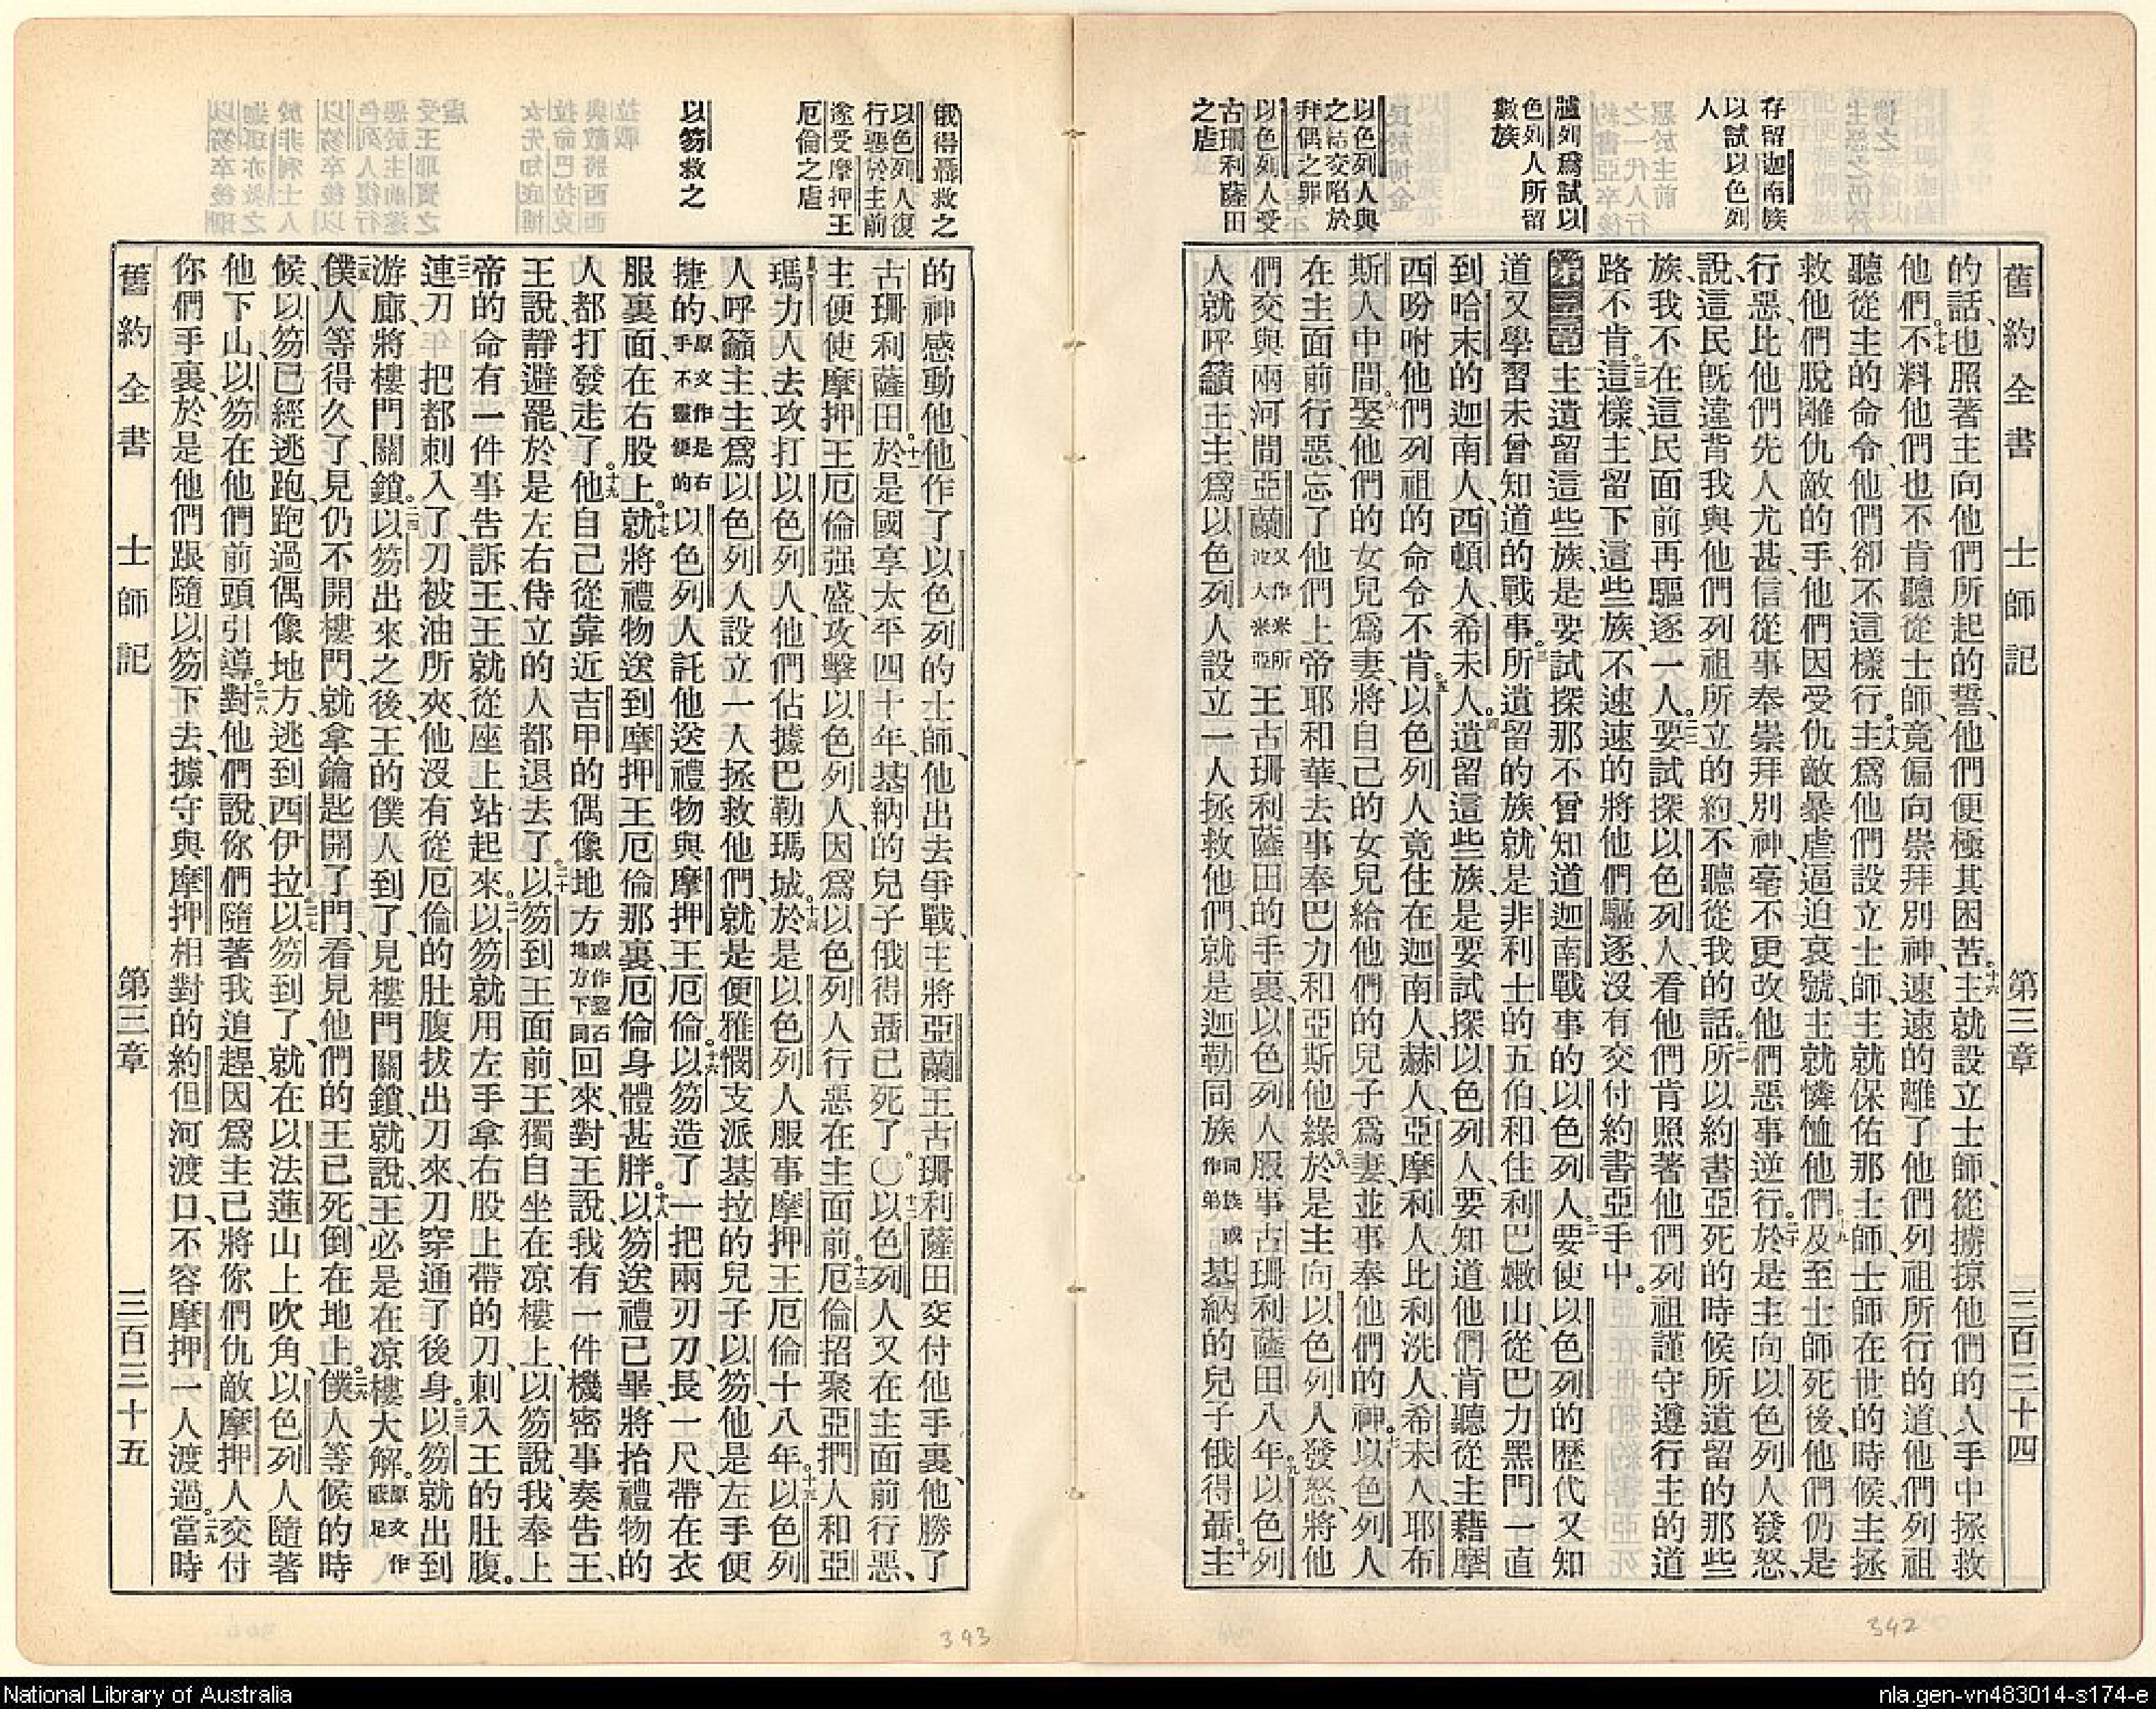 舊約全書 士師記 第三章 三百三十四
存留迦南族
以試以色列
人
臚列爲試以
色列人所留
數族
以色列人與
之結交陷於
拜偶之罪
以色列人受
古珊利薩田
之虐
的話、也照著主向他們所起的誓、他們便極其困苦。十六主就設立士師、從擄掠他們的人手中拯救
他們。十七不料他們也不肯聽從士師、竟偏向崇拜別神、速速的離了他們列祖所行的道、他們列祖
聽從主的命令、他們卻不這樣行。十八主爲他們設立士師、主就保佑那士師、士師在世的時候、主拯
救他們脫離仇敵的手、他們因受仇敵暴虐逼迫哀號、主就憐恤他們。十九及至士師死後、他們仍是
行惡、比他們先人尤甚、信從事奉崇拜別神、毫不更改他們惡事逆行。二十於是主向以色列人發怒、
說、這民旣違背我與他們列祖所立的約、不聽從我的話。二一所以約書亞死的時候所遺留的那些
族、我不在這民面前再驅逐一人。二二要試探以色列人、看他們肯照著他們列祖謹守遵行主的道
路不肯。二三這樣、主留下這些族、不速速的將他們驅逐、沒有交付約書亞手中。
第三章 一主遺留這些族、是要試探那不曾知道迦南戰事的以色列人。二要使以色列的歷代又知
道又學習未曾知道的戰事。三所遺留的族、就是非利士的五伯、和住利巴嫩山、從巴力黑門一直
到哈末的迦南人、西頓人、希未人。四遺留這些族、是要試探以色列人、要知道他們肯聽從主藉摩
西吩咐他們列祖的命令不肯。五以色列人竟住在迦南人、赫人、亞摩利人、比利洗人、希未人、耶布
斯人中間。六娶他們的女兒爲妻、將自己的女兒給他們的兒子爲妻、並事奉他們的神。七以色列人
在主面前行惡、忘了他們上帝耶和華、去事奉巴力和亞斯他綠。八於是主向以色列人發怒、將他
們交與兩河間亞蘭又作米所波大米亞王古珊利薩田的手裏、以色列人服事古珊利薩田八年。九以色列
人就呼籲主、主爲以色列人設立一人拯救他們、就是迦勒同族同族或作弟基納的兒子俄得聶。十主
342
俄得聶救之
以色列人復
行惡於主前
遂受摩押王
厄倫之虐
以笏救之
的神感動他、他作了以色列的士師、他出去爭戰、主將亞蘭王古珊利薩田交付他手裏、他勝了
古珊利薩田。十一於是國享太平四十年、基納的兒子俄得聶已死了。〇十二以色列人又在主面前行惡、
主便使摩押王厄倫强盛、攻擊以色列人、因爲以色列人行惡在主面前。十三厄倫招聚亞捫人和亞
瑪力人去攻打以色列人、他們佔據巴勒瑪城。十四於是以色列人服事摩押王厄倫十八年。十五以色列
人呼籲主、主爲以色列人設立一人拯救他們、就是便雅憫支派基拉的兒子以笏、他是左手便
捷的、原文作是右手不靈便的以色列人託他送禮物與摩押王厄倫。十六以笏造了一把兩刃刀、長一尺、帶在衣
服裏面、在右股上。十七就將禮物送到摩押王厄倫那裏、厄倫身體甚胖。十八以笏送禮已畢、將抬禮物的
人都打發走了。十九他自己從靠近吉甲的偶像地方或作鑿石地方下同回來、對王說、我有一件機密事奏告王、
王說、靜避罷、於是左右侍立的人都退去了。二十以笏到王面前、王獨自坐在凉樓上、以笏說、我奉上
帝的命有一件事告訴王、王就從座上站起來。二一以笏就用左手拿右股上帶的刀、刺入王的肚腹。
二二連刀把都刺入了、刃被油所夾、他沒有從厄倫的肚腹拔出刀來、刀穿通了後身。二三以笏就出到
游廊、將樓門關鎖。二四以笏出來之後、王的僕人到了、見樓門關鎖、就說、王必是在凉樓大解。原文作蔽足
二五僕人等得久了、見仍不開樓門、就拿鑰匙開了門、看見他們的王已死、倒在地上。二六僕人等候的時
候、以笏已經逃跑、跑過偶像地方、逃到西伊拉。二七以笏到了、就在以法蓮山上吹角、以色列人隨著
他下山、以笏在他們前頭引導。二八對他們說、你們隨著我追趕、因爲主已將你們仇敵摩押人交付
你們手裏、於是他們跟隨以笏下去、據守與摩押相對的約但河渡口、不容摩押一人渡過。二九當時
舊約全書 士師記 第三章 三百三十五
343
National Library of Australia
nla.gen-vn483014-s174-e